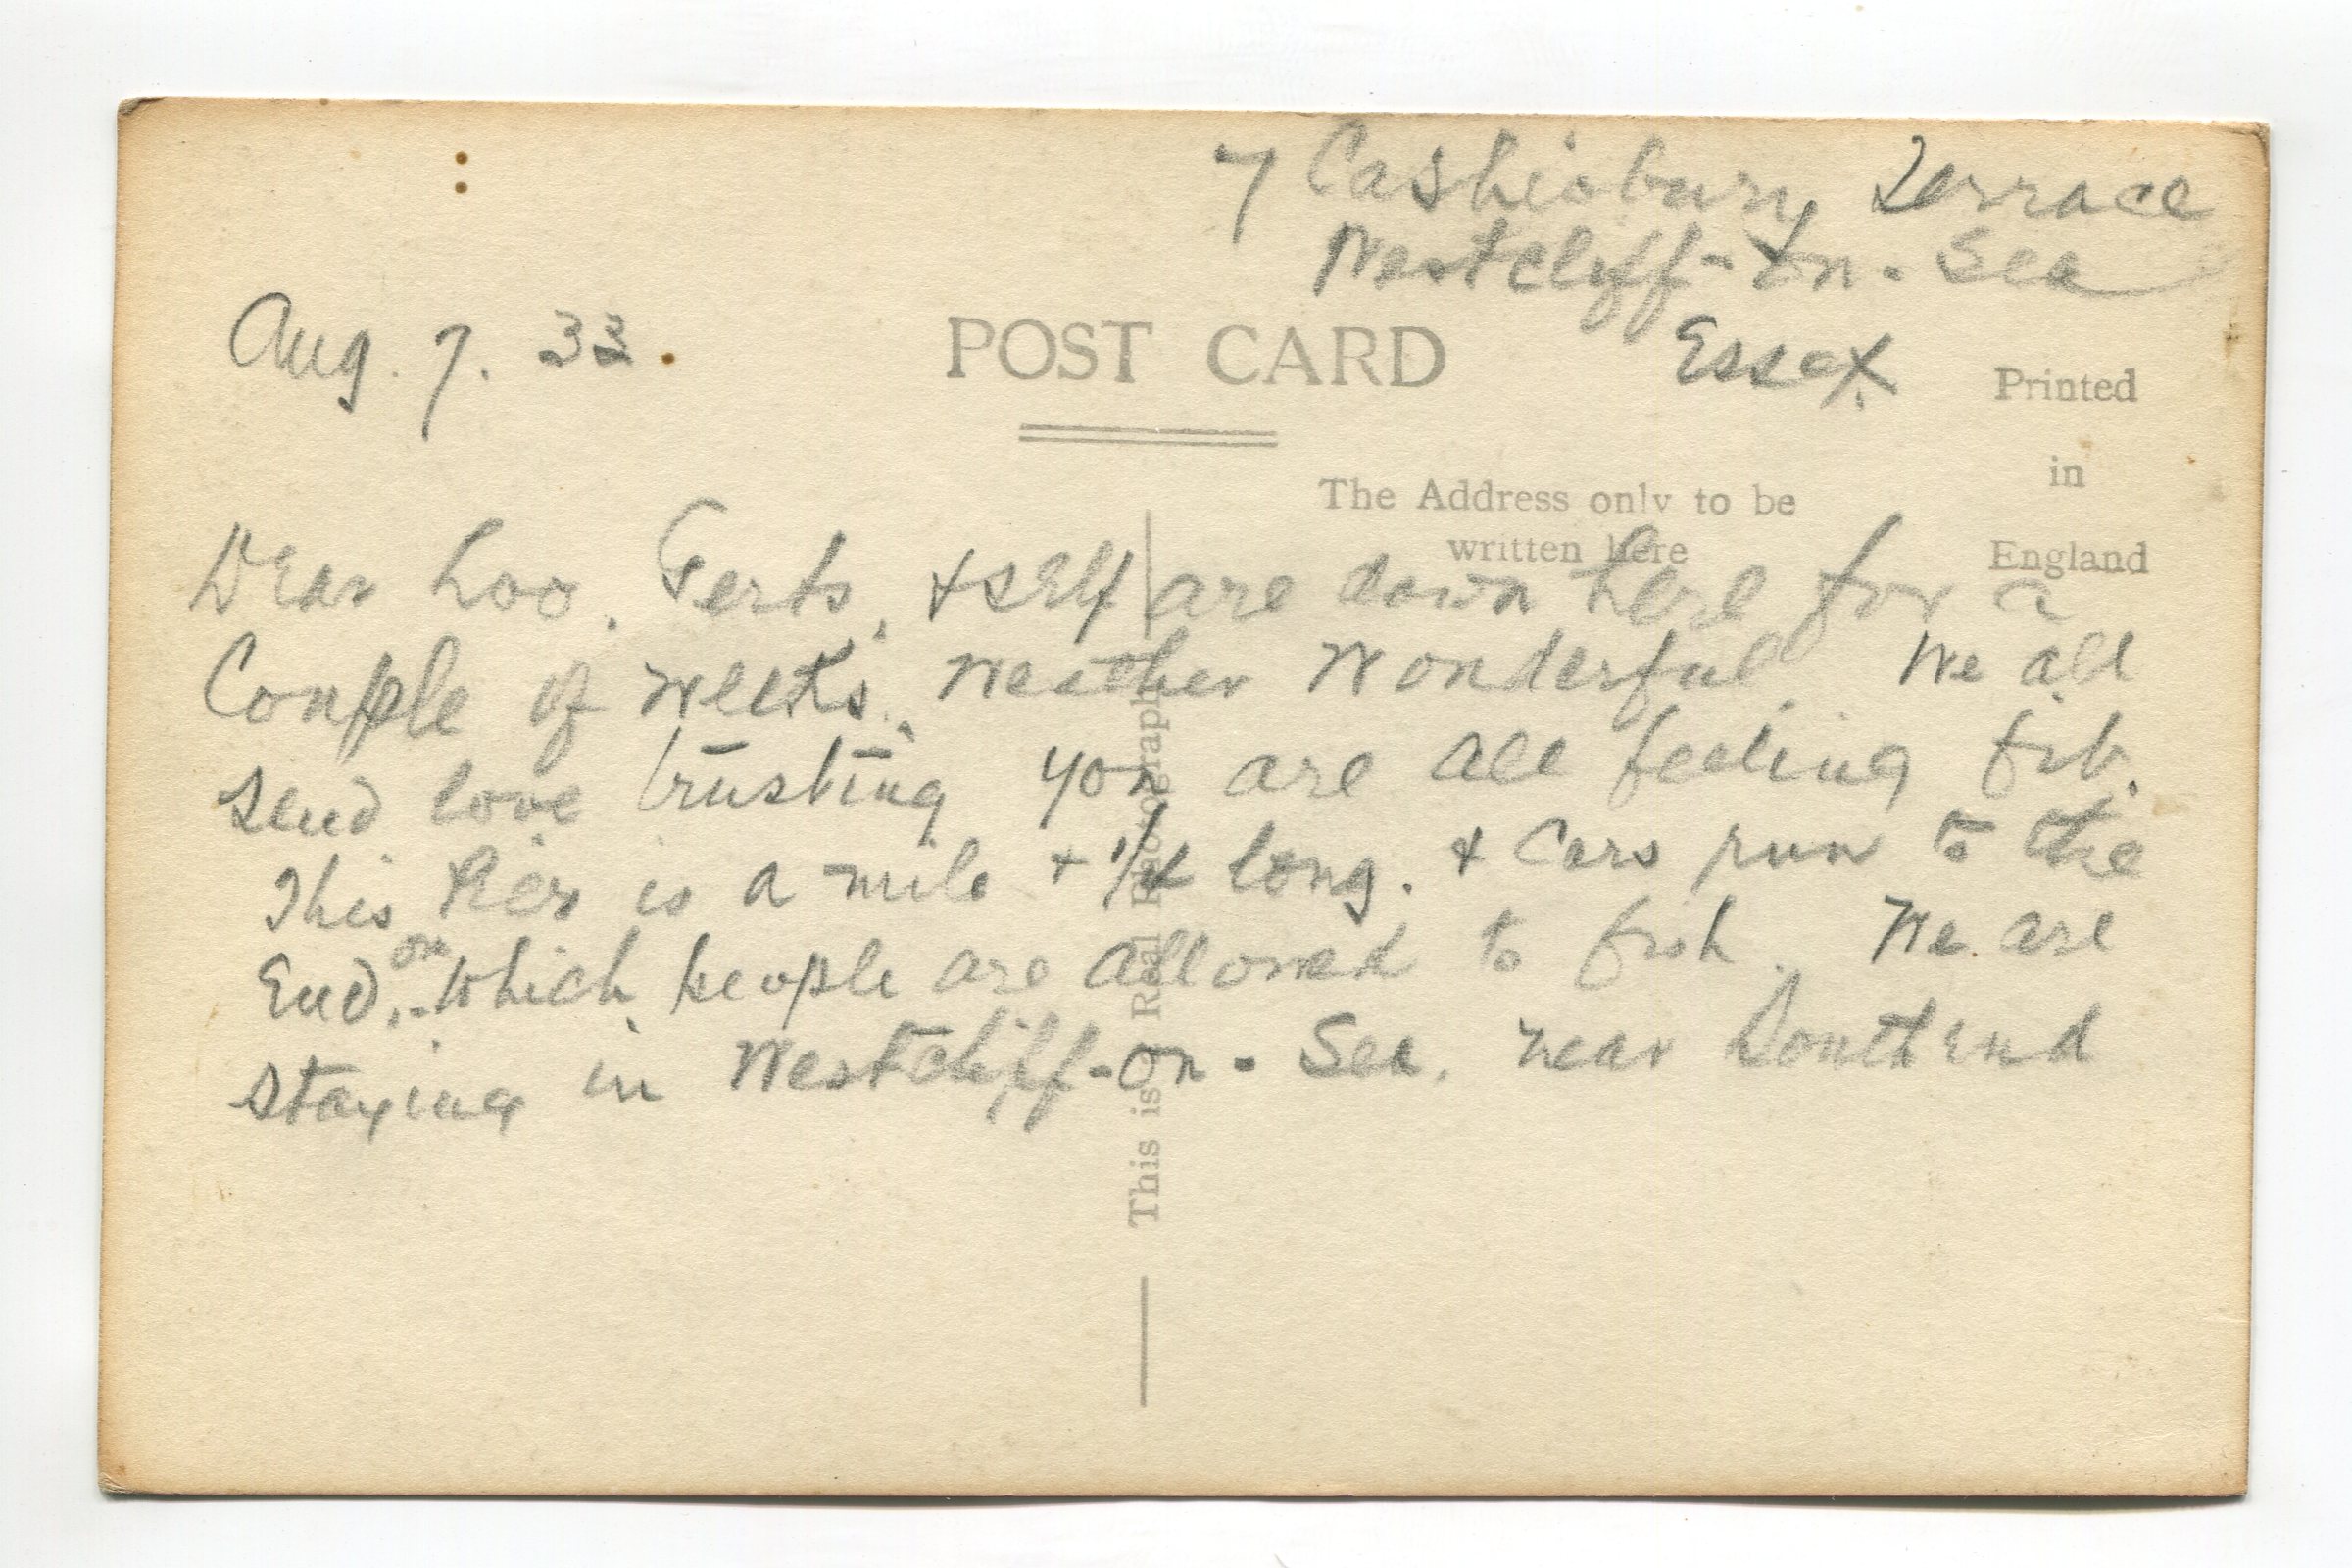 7 Cashiobury Terrace
Westcliff-on-Sea
Essex
Aug. 7. 33.
POST CARD
Printed
in
England
The Address only to be
written here
Dear Loo. Gerts, + self are down here for a
Couple of weeks. Weather Wonderful. We all
send love trusting you are all feeling fit.
This Pier is a mile + 1/4 long. + Cars run to the
End, on which people are allowed to fish. We are
staying in Westcliff-on-Sea. near Southend
This is a Real Photograph